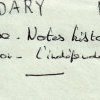 DARY
- Notes hist
- l'indépend